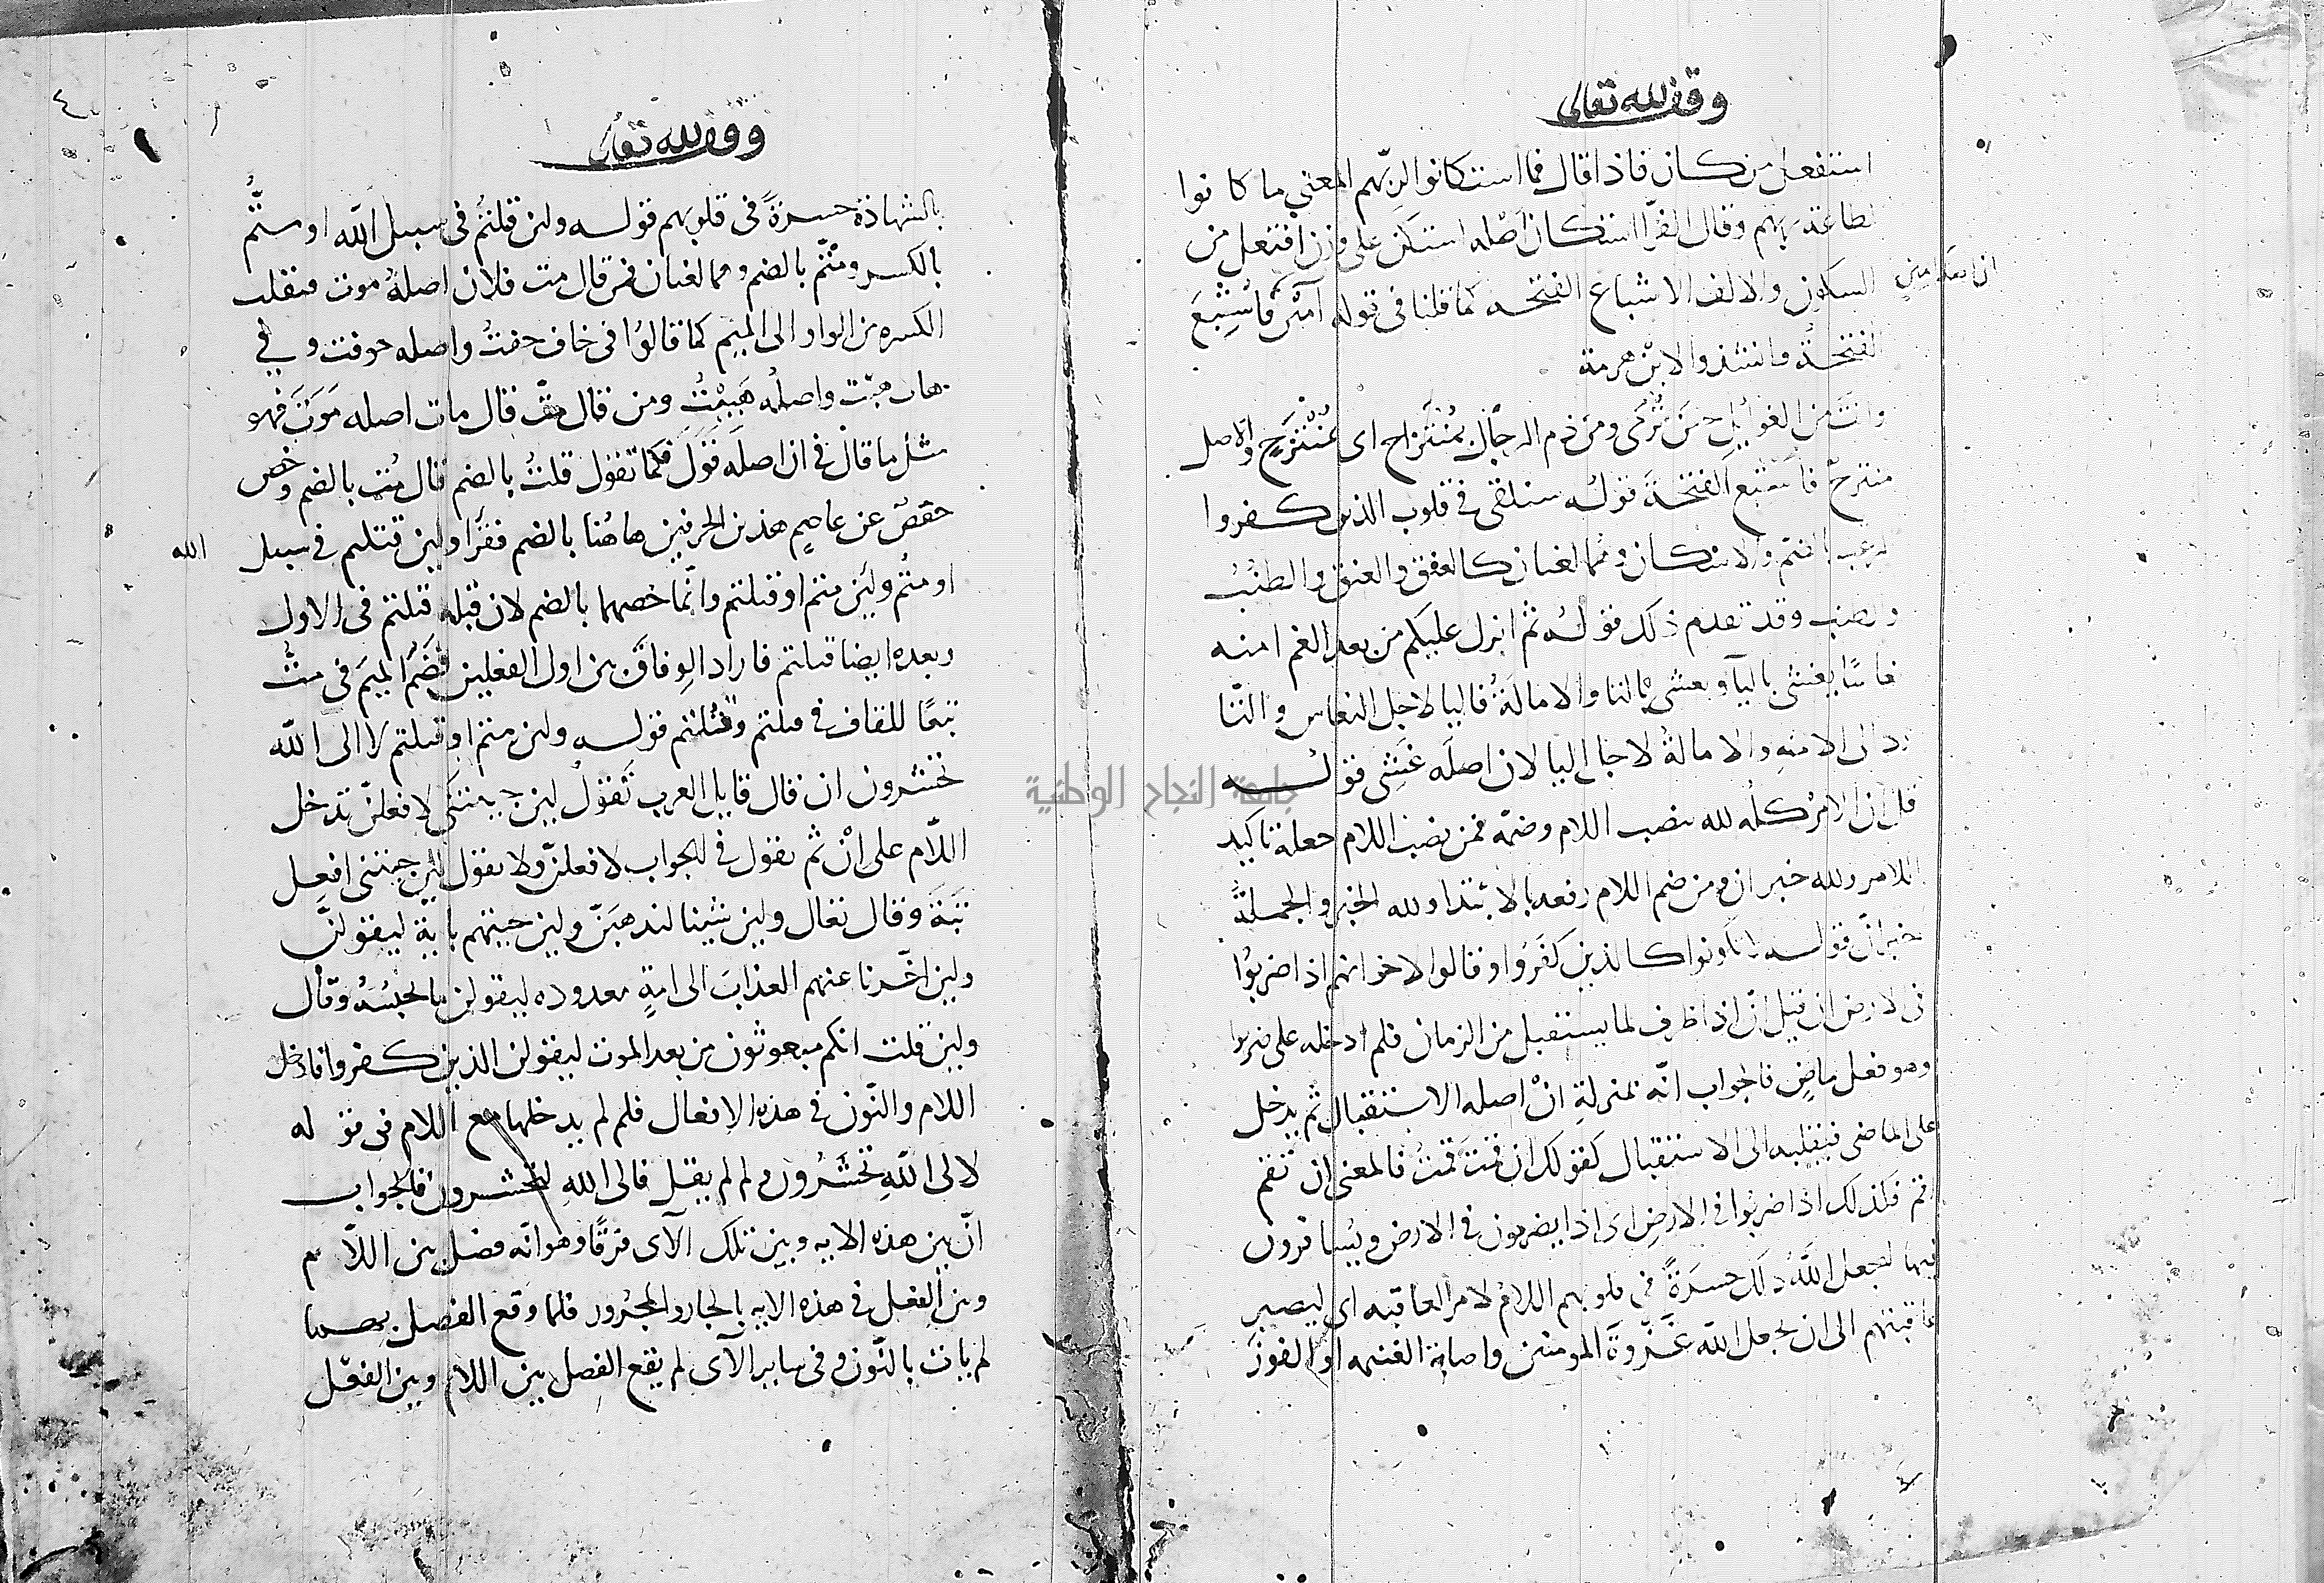 وقف لله تعالى
استفعل من كان فاذا قال فما استكانوا لربهم المعنى ما كانوا
لطاعة ربهم وقال الفرا استكان اصله استكن على وزن افتعل من
السكون والالف لاشباع الفتحه كما قلنا فى قوله آمين فاشبع
ان اصله امين
الفتحة وانشدوا لابن هرمة
وانت من الغوايل حين تُرمى ومن ذم الرجال بمُنْتَزاح اى بمُنْتَزَحٍ والاصل
منتزح فاشبع الفتحة قوله سنلقى فى قلوب الذين كفروا
الرعب بالضم والاسكان وهما لغتان كالعنق والعنق والطنب
والطنب وقد تقدم ذلك قوله ثم انزل عليكم من بعد الغم امنه
نعاسًا يغشى باليآ وتغشى بالتا والامالة فاليا لاجل النعاس والتّا
رد الى الامنه والامالة لاجل اليا لان اصله غشى قوله
قل ان الامر كله لله بنصب اللام وضمه فمن نصب اللام جعله تاكيد
للامر ولله خبر ان ومن ضم اللام رفعه بالابتدا ولله الخبر والجملة
خبر انّ قوله لا تكونوا كالذين كَفَرُوا وقالوا لاخوانهم اذا ضربُوا
فى الارض ان قيل انّ اذا ظرف لما يستقبل من الزمان فلم ادخله على ضربوا
وهو فعل ماضٍ فالجواب انّه بمنزلة انْ اصله الاستقبال ثم يدخل
على الماضى فينقله الى الاستقبال كقولك ان قمتَ قمتُ فالمعنى ان تقم
اقم فكذلك اذا ضربُوا فى الارض اى اذا يضربون فى الارض ويُسافرون
فيها ليجعل اللّهُ ذلك حسرةً فى قلوبهم اللام لام العاقبه اى ليصير
عاقبتهم الى ان يجعل اللّه غزوة المومنين واصابة الغنيمه او الفوز
وقف لله تعالى
بالشهادة حسرةً فى قلوبهم قوله ولئن قتلتُم فى سبيل اللّه او متّم
بالكسر ومُتّم بالضم وهما لغتان فمن قال مت فلان اصلهُ موت فنقلت
الكسره من الواو الى الميم كما قالوُا فى خاف خفتُ واصله خوفت وفي
هاب هبت واصلُه هَيِبْتُ ومن قال مُتّ قال مات اصله مَوَتَ فهو
مثل ما قال فى ان اصلَه قَوَلَ فكما تقول قلتُ بالضم قال مُت بالضم وخص
حفصٌ عن عاصمٍ هذين الحرفين هاهُنا بالضم فقرَا ولين قتلتم فى سبيل الله
او متُم ولَين متم او قتلتم وانّما خصهما بالضم لان قبله قتلتم فى الاول
وبعده ايضا قتلتم فاراد الوفاق بين اول الفعلين فضَمّ الميمَ فى متّ
تبعًا للقاف فى قتلتم وقُتلتم قوله ولئن متم او قتلتم لا الى اللّه
تحشرون ان قال قايل العرب تقول لين جيتنى لافعلنّ تدخل
اللّام على انْ ثم تقول فى الجواب لافعلنّ ولا تقول لئن جيتنى افعل
بَتّة وقال تعالى ولين شينا لنذهبَنّ ولين جيتهم باية ليقولنّ
ولين اخّرنا عنهم العذابَ الى امةٍ معدوده ليقولن ما يحبسُهُ وقال
ولين قلت انكم مبعوثون من بعد الموت ليقولن الذين كفروا فادخل
اللام والنّون فى هذه الافعال فلم لم يدخلها مع اللام فى قوله
لالى اللّهِ تحْشَرُون ولم لم يقل فالى اللهِ لتحشرون فالجواب
انّ بين هذه الايه وبين تلك الآى فرقًا وهو انّه فصل بين اللّام
وبين الفعل فى هذه الايه بالجار والمجرور فلما وقع الفصل بينهما
لم يات بالنّون وفى ساير الآى لم يقع الفصل بين اللام وبين الفعّل
٤
جامعة النجاح الوطنية